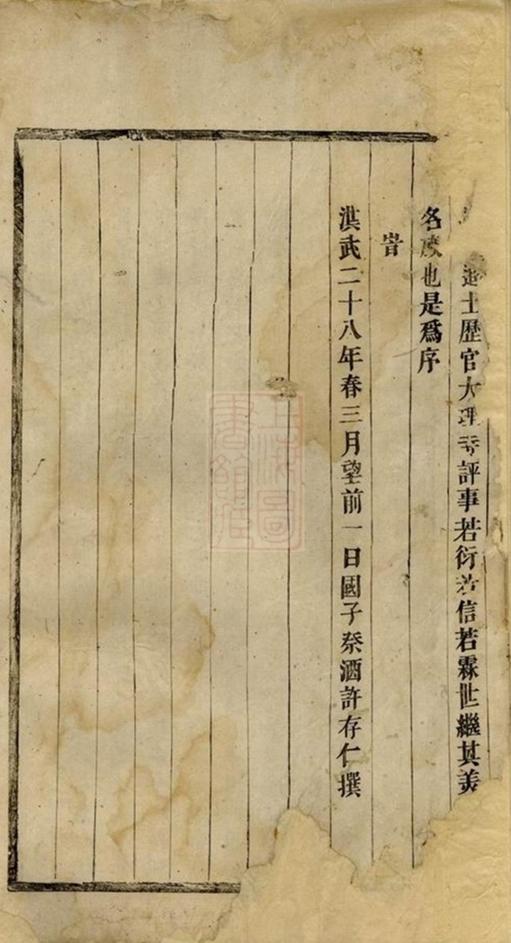 進士歷官大理寺評事若衍若信若霖世繼其美
名茂也是爲序
旹
洪武二十八年春三月望前一日國子祭酒許存仁撰
上海圖書館藏